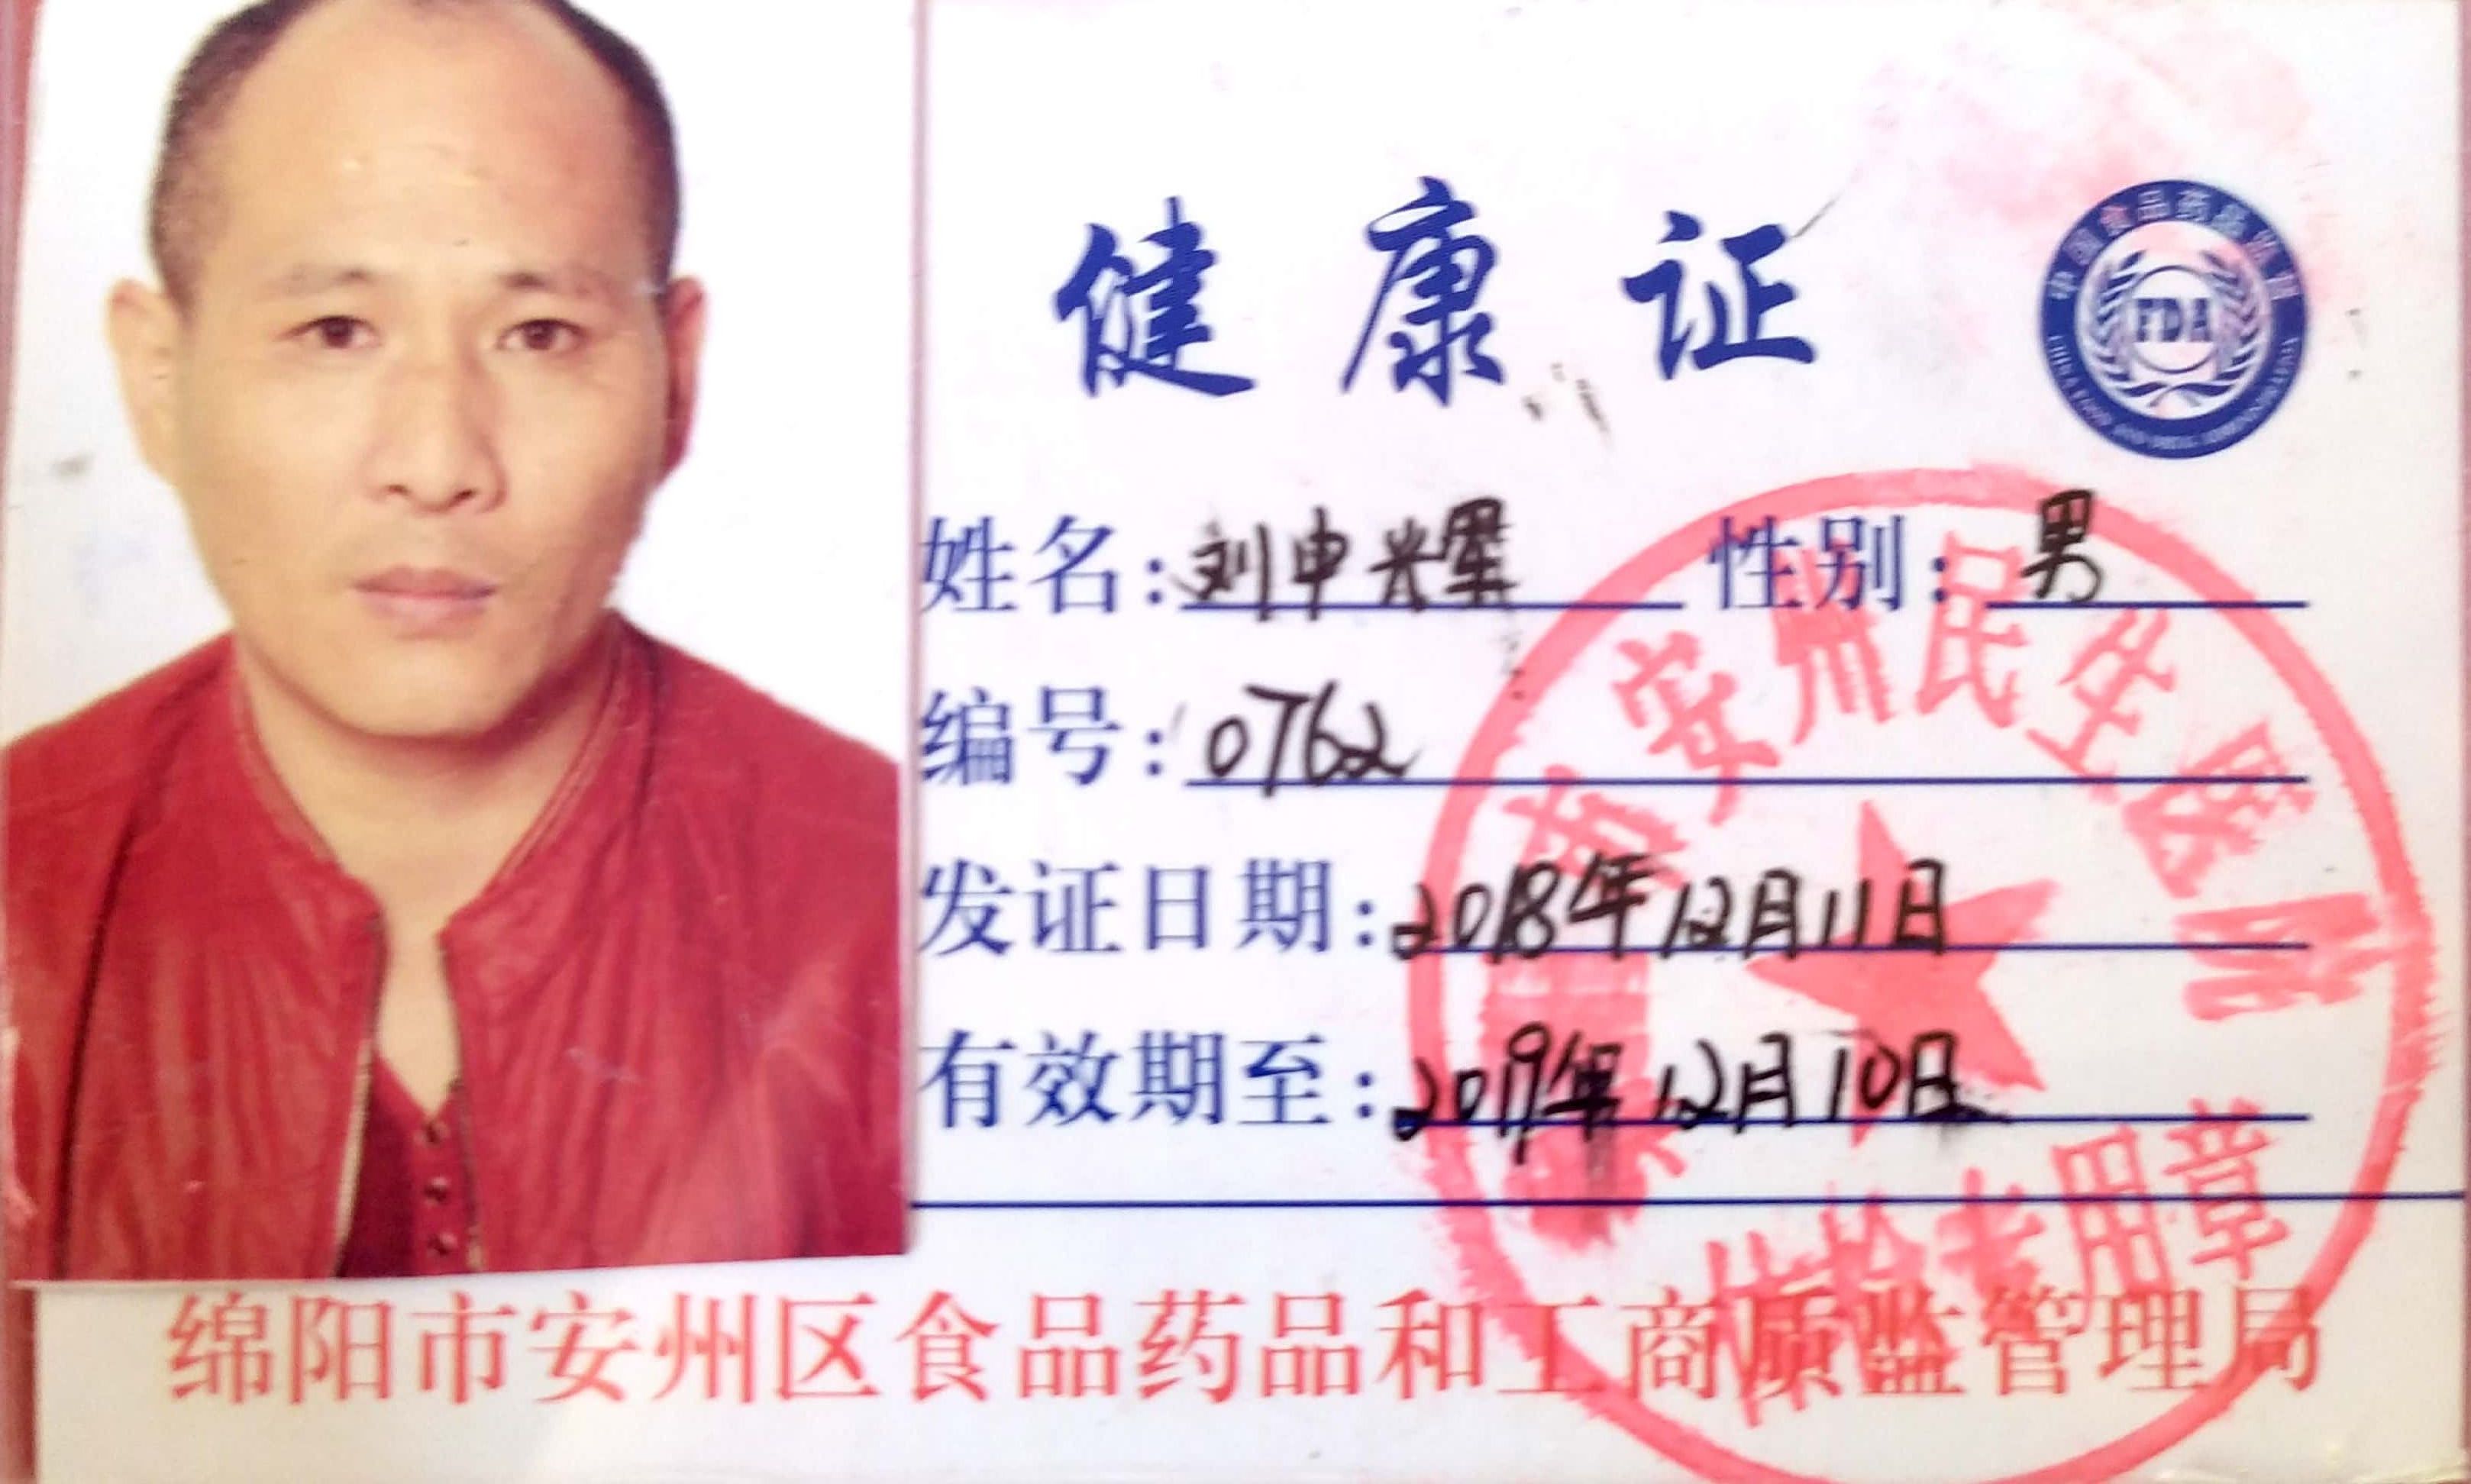 健康证
中国食品药品监管
FDA
CHINA FOOD AND DRUG ADMINISTRATION
姓名:刘中光军 性别:男
编号:0762
发证日期:2018年12月11日
有效期至:2019年12月10日
安州民生医院
体检专用章
绵阳市安州区食品药品和工商质监管理局